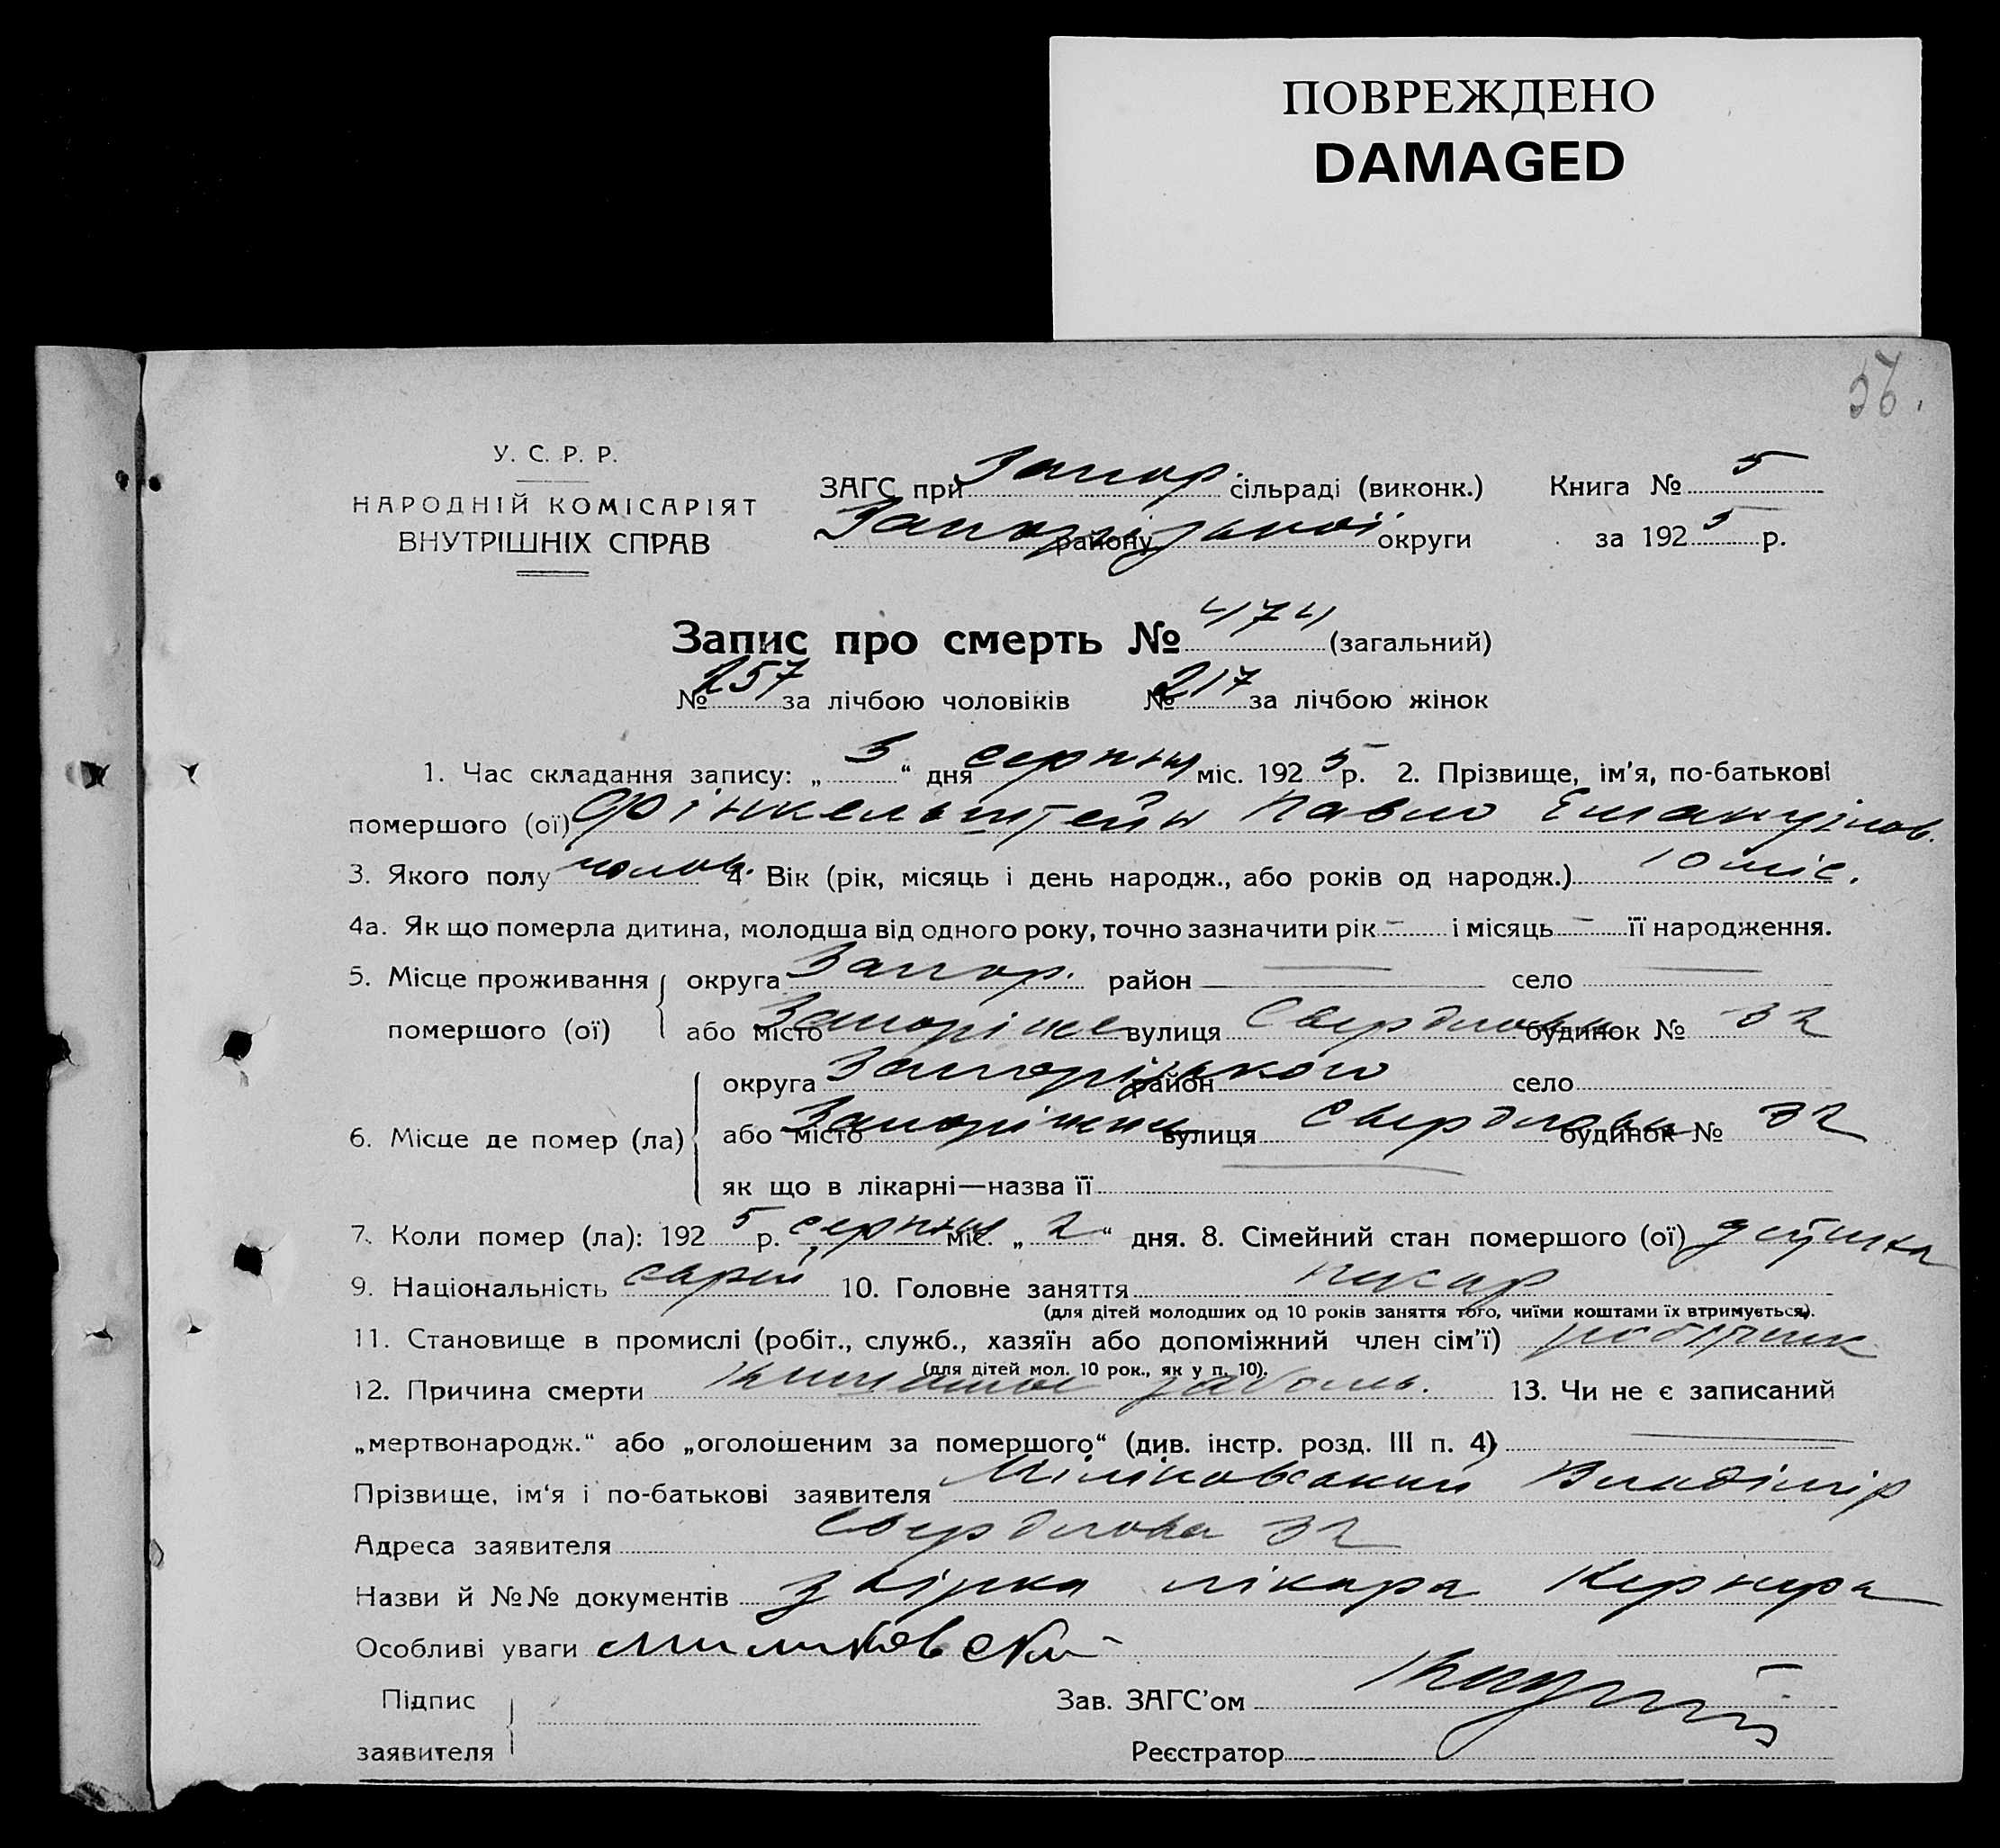 ПОВРЕЖДЕНО
DAMAGED
56.
У. С. Р. Р.
НАРОДНІЙ КОМІСАРІЯТ
ВНУТРІШНІХ СПРАВ
ЗАГС при Запор. сільраді (виконк.) Книга № 5
Запорізької району округи за 1925 р.
Запис про смерть № 474 (загальний)
№ 257 за лічбою чоловіків № 217 за лічбою жінок
1. Час складання запису: „3“ дня серпня міс. 1925 р. 2. Прізвище, ім’я, по-батькові
помершого (ої) Фінкельштейн Павло Емануілов.
3. Якого полу чолов. 4 Вік (рік, місяць і день народж., або років од народж.) 10 міс.
4а. Як що померла дитина, молодша від одного року, точно зазначити рік – і місяць – її народження.
5. Місце проживання округа Запор. район — село —
помершого (ої) або місто Запоріже вулиця Свердлова будинок № 32
округа Запорізького район село
6. Місце де помер (ла) або місто Запоріжжя вулиця Свердлова будинок № 32
як що в лікарні—назва її —
7. Коли помер (ла): 1925 р. серпня міс. „2“ дня. 8. Сімейний стан помершого (ої) дитина
9. Національність єврей 10. Головне заняття пекар
(для дітей молодших од 10 років заняття того, чиїми коштами їх втримується).
11. Становище в промислі (робіт., служб., хазяїн або допоміжний член сім’ї) робітник
(для дітей мол. 10 рок., як у п. 10).
12. Причина смерти заболь. 13. Чи не є записаний
„мертвонародж.“ або „оголошеним за помершого“ (див. інстр. розд. III п. 4) —
Прізвище, ім‘я і по-батькові заявителя Міліковський Владімір
Адреса заявителя Свердлова 32
Назви й №№ документів лікара Кернера
Особливі уваги Миликовский
Підпис Зав. ЗАГС’ом
заявителя Реєстратор